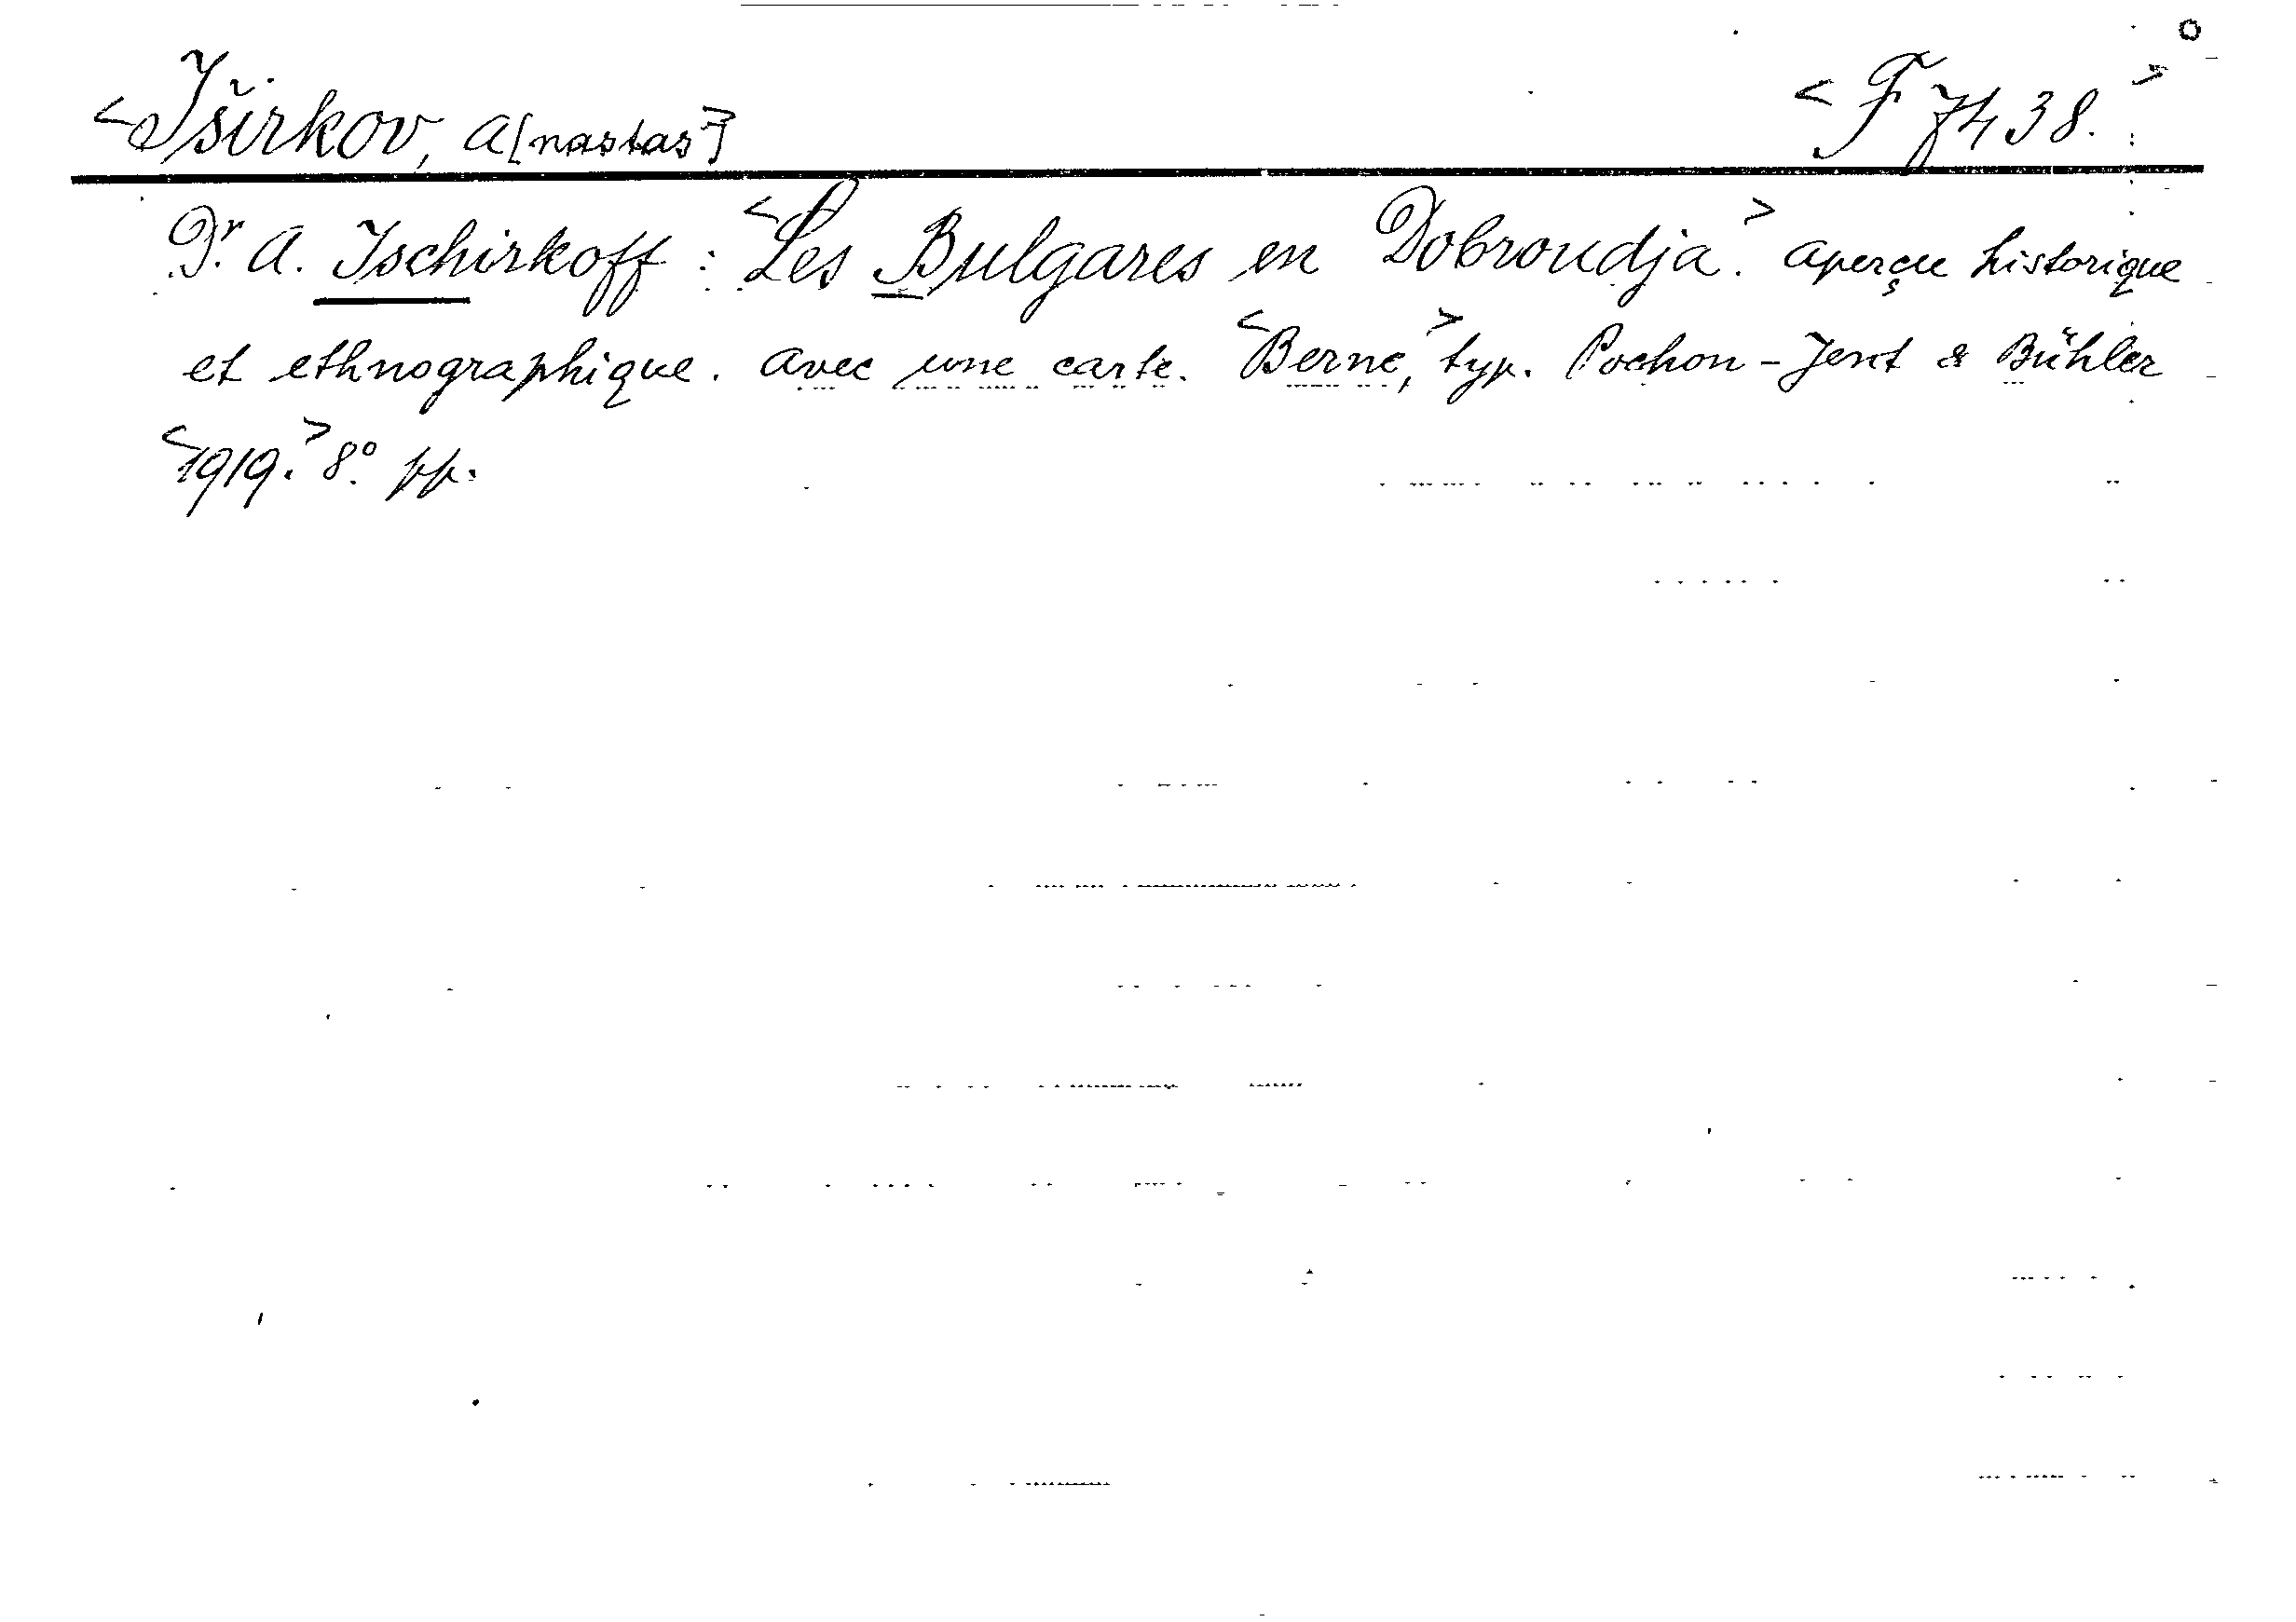 <Iširkov, A[nastas] <F 7438.>
Dr. A. Ischirkoff : <Les Bulgares en Dobroudja.> Aperçu historique
et ethnographique. Avec une carte. <Berne,> typ. Pochon-Jent & Bühler
<1919.> 8°. pp.